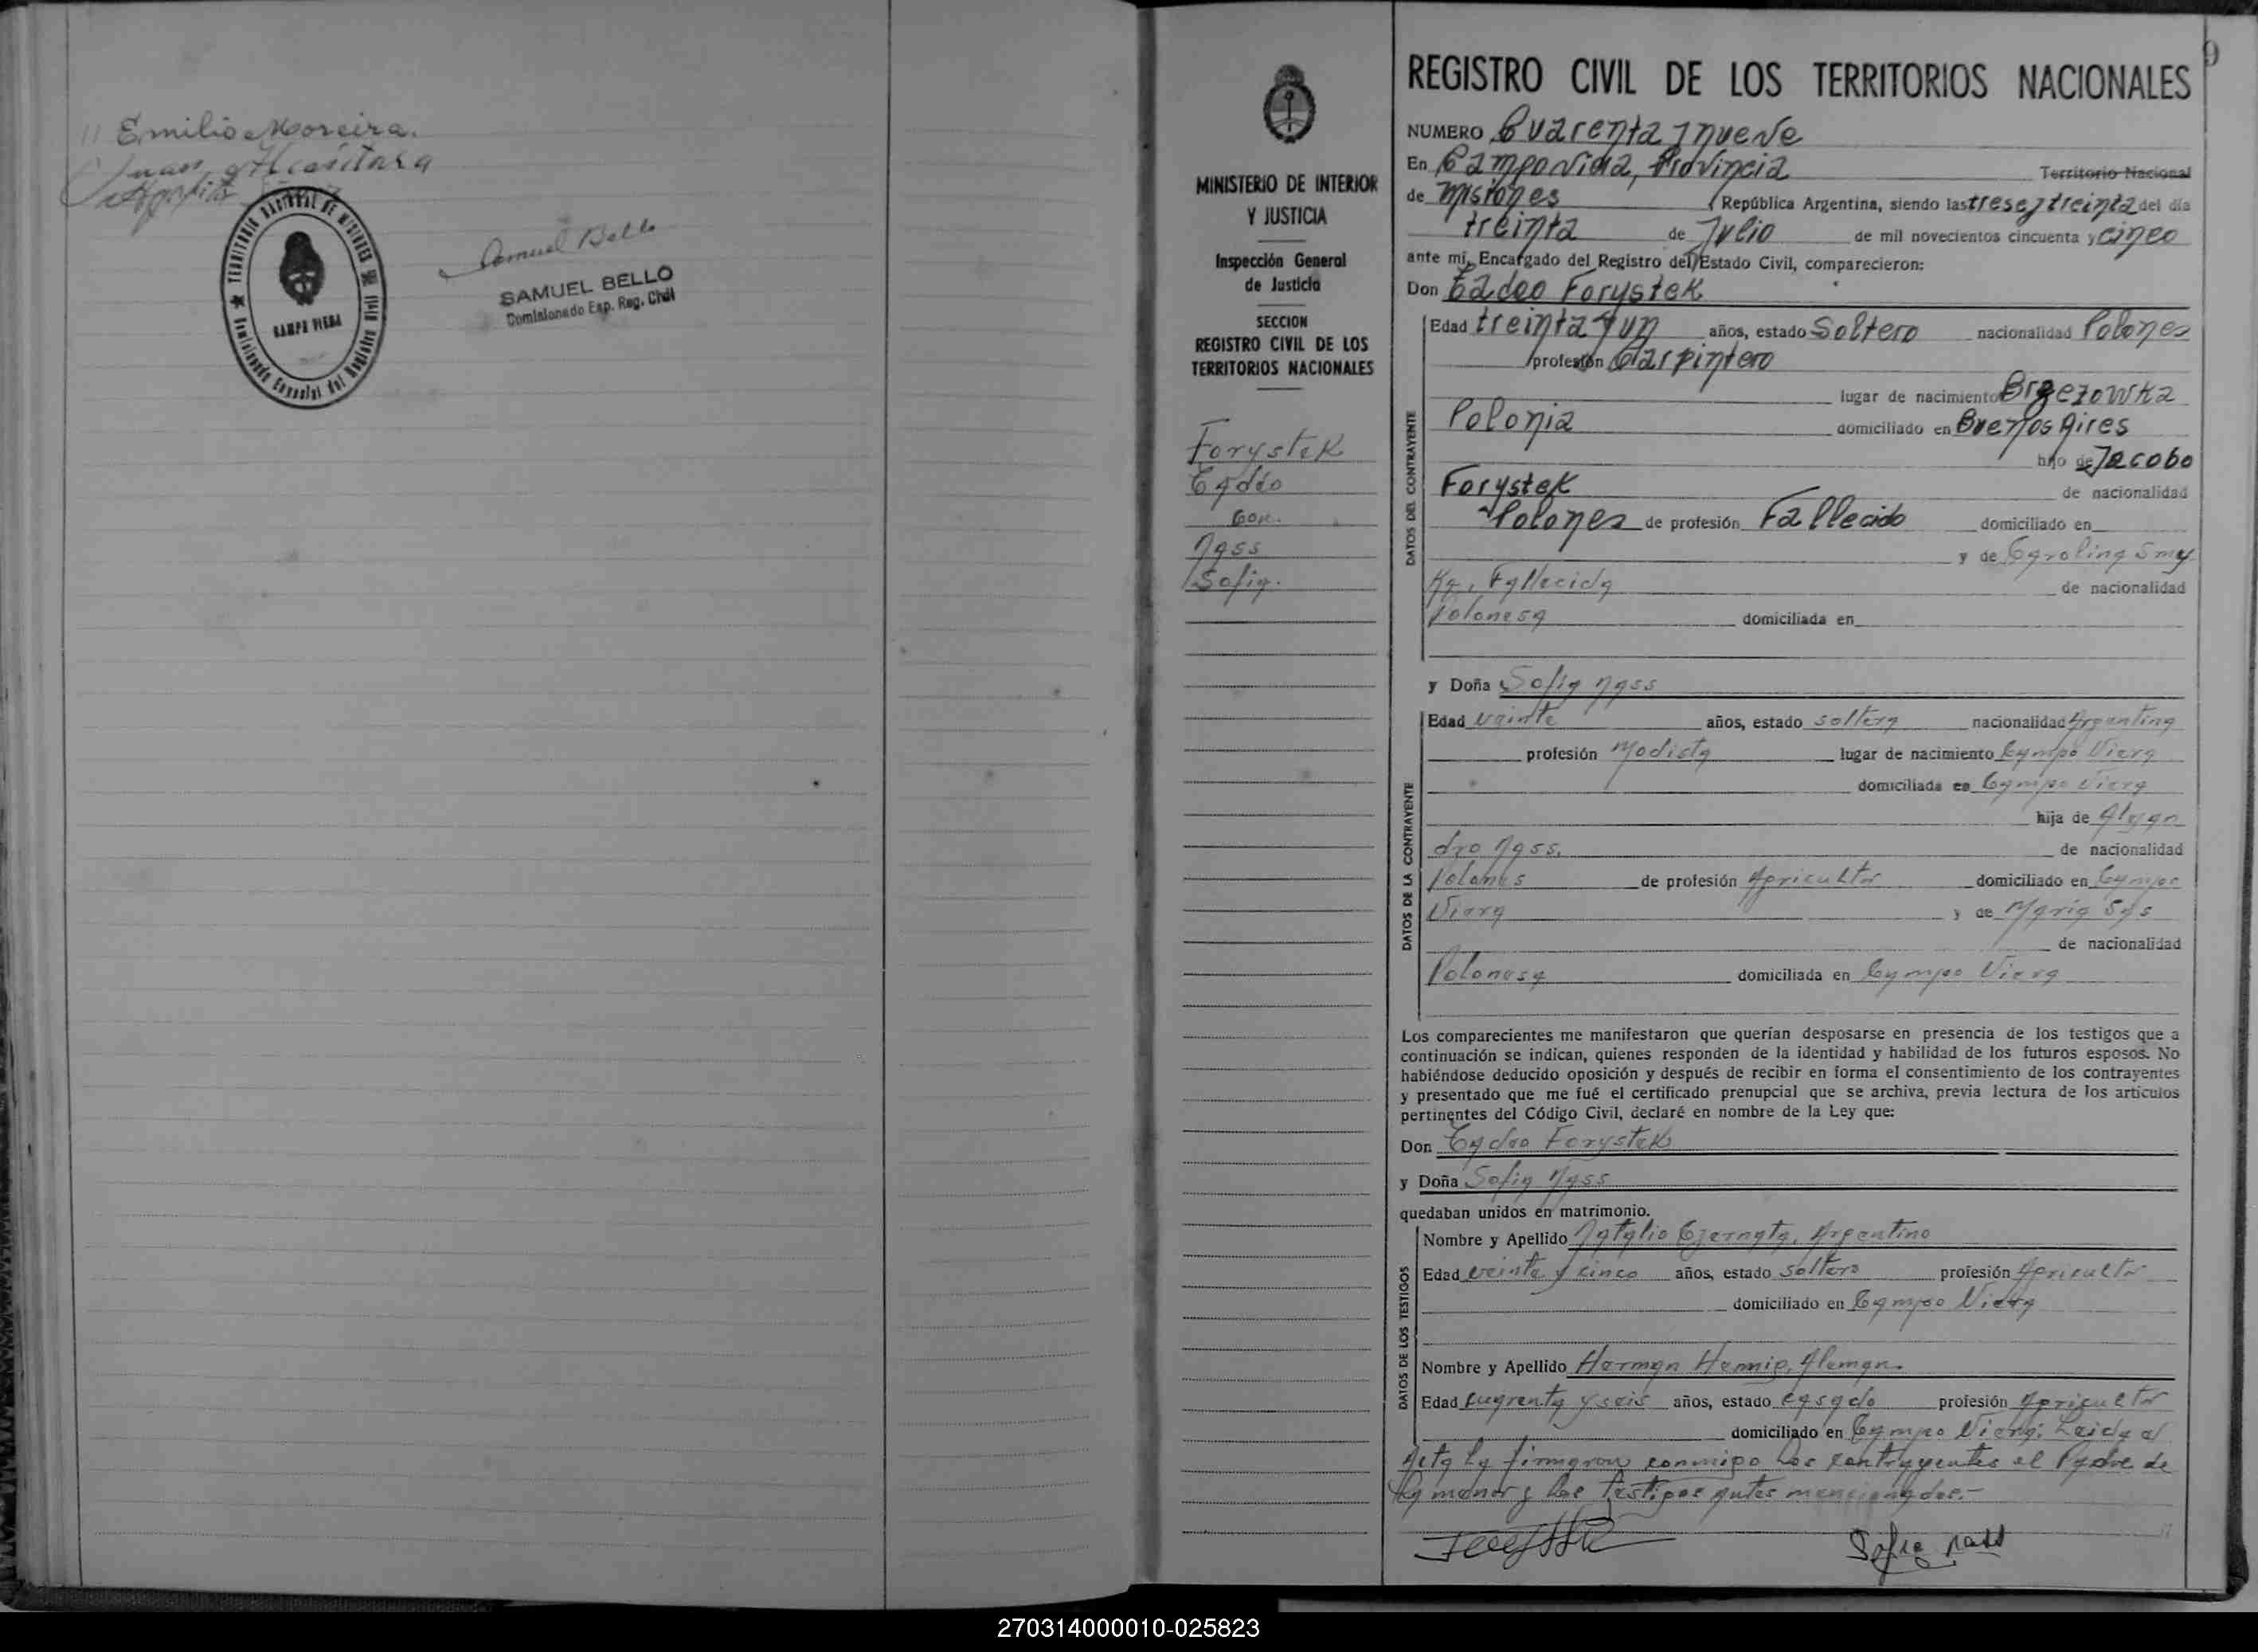 Emilio Moreira.
Juan Alcantara
TERRITORIO NACIONAL DE MISIONES
CAMPO VIERA
Comisionado Especial del Registro Civil
Samuel Bello
SAMUEL BELLO
Comisionado Esp. Reg. Civil
9
MINISTERIO DE INTERIOR
Y JUSTICIA
Inspección General
de Justicia
SECCION
REGISTRO CIVIL DE LOS
TERRITORIOS NACIONALES
Forystek
Tadeo
con.
Nass
Sofia.
REGISTRO CIVIL DE LOS TERRITORIOS NACIONALES
NUMERO Cuarenta y nueve
En Campo Viera, Provincia Territorio Nacional
de Misiones República Argentina, siendo las trese y treinta del día
treinta de Julio de mil novecientos cincuenta y cinco
ante mí, Encargado del Registro del Estado Civil, comparecieron:
Don Tadeo Forystek
DATOS DEL CONTRAYENTE
Edad treinta y un años, estado Soltero nacionalidad Polones
profesión Carpintero
lugar de nacimiento Brzezowka
Polonia domiciliado en Buenos Aires
hijo de Jacobo
Forystek de nacionalidad
Polones de profesión Fallecido domiciliado en
y de Carolina Smy
ka, Fallecida de nacionalidad
Polonesa domiciliada en
y Doña Sofia Nass
DATOS DE LA CONTRAYENTE
Edad veinte años, estado soltera nacionalidad Argentina
profesión Modista lugar de nacimiento Campo Viera
domiciliada en Campo Viera
hija de Alejan
dro Nass. de nacionalidad
Polones de profesión Agricultor domiciliado en Campo
Viera y de Maria Sas
de nacionalidad
Polonesa domiciliada en Campo Viera
Los comparecientes me manifestaron que querían desposarse en presencia de los testigos que a
continuación se indican, quienes responden de la identidad y habilidad de los futuros esposos. No
habiéndose deducido oposición y después de recibir en forma el consentimiento de los contrayentes
y presentado que me fué el certificado prenupcial que se archiva, previa lectura de los artículos
pertinentes del Código Civil, declaré en nombre de la Ley que:
Don Tadeo Forystek
y Doña Sofia Nass
quedaban unidos en matrimonio.
DATOS DE LOS TESTIGOS
Nombre y Apellido Natalio Czernata, Argentino
Edad veinte y cinco años, estado soltero profesión Agricultor
domiciliado en Campo Viera
Nombre y Apellido Herman Hennig, Aleman.
Edad cuarenta y seis años, estado casado profesión Agricultor
domiciliado en Campo Viera; Leida el
Acta la firmaron conmigo los contrayentes el Padre de
la menor y los testigos antes mencionados.-
Sofia Nass
270314000010-025823